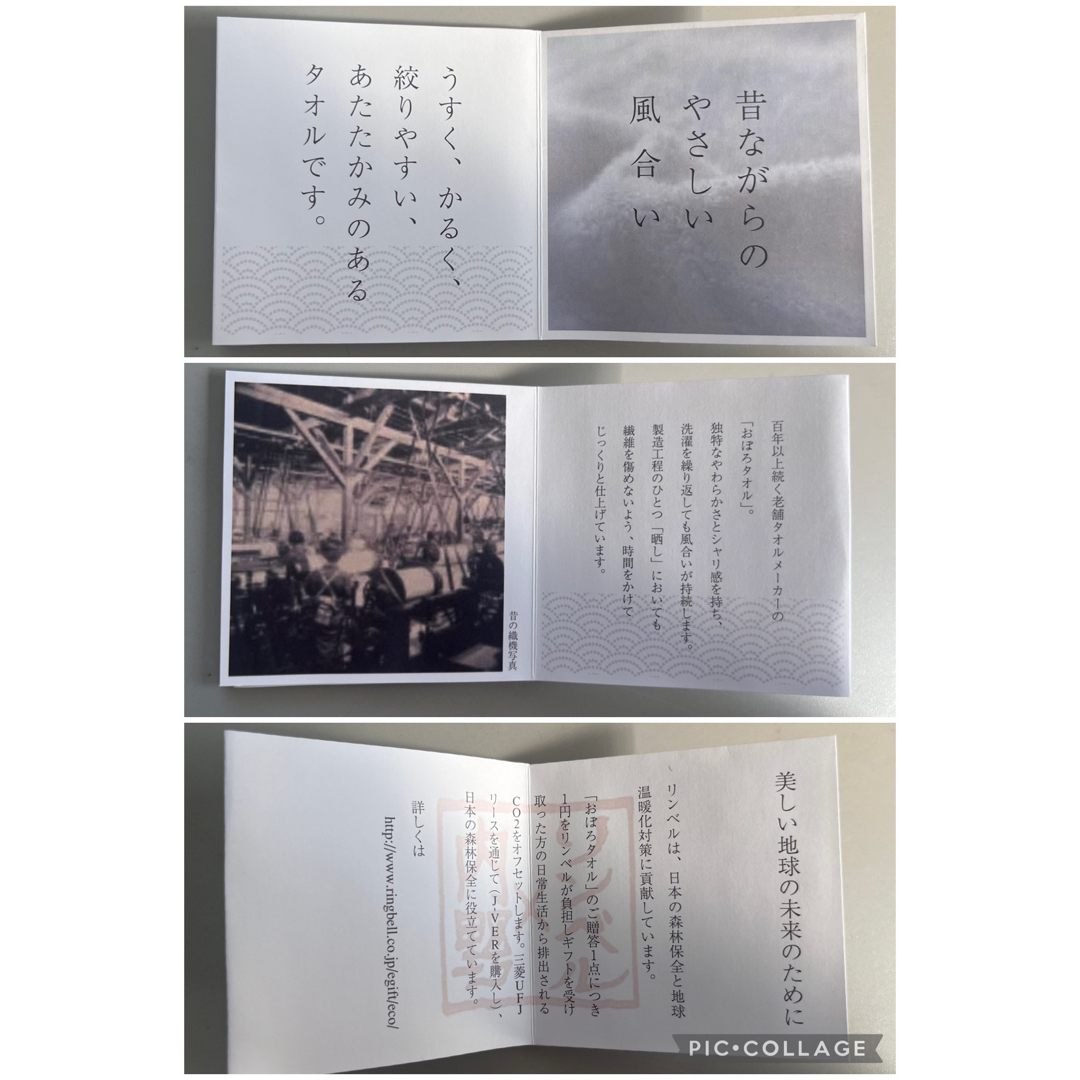 昔ながらの
やさしい
風合い
うすく、かるく、
絞りやすい、
あたたかみのある
タオルです。
百年以上続く老舗タオルメーカーの
「おぼろタオル」。
独特なやわらかさとシャリ感を持ち、
洗濯を繰り返しても風合いが持続します。
製造工程のひとつ「晒し」においても
繊維を傷めないよう、時間をかけて
じっくりと仕上げています。
昔の織機写真
美しい地球の未来のために
リンベルは、日本の森林保全と地球
温暖化対策に貢献しています。
「おぼろタオル」のご贈答1点につき
1円をリンベルが負担しギフトを受け
取った方の日常生活から排出される
CO2をオフセットします。三菱UFJ
リースを通じて(J-VERを購入し)、
日本の森林保全に役立てています。
詳しくは
http://www.ringbell.co.jp/egift/eco/
リンベル
PIC•COLLAGE